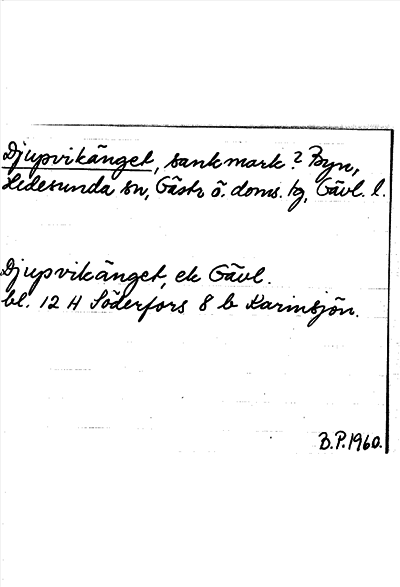 Djupvikänget, sankmark? Byn,
Hedesunda sn, Gästr ö. doms. tg, Gävl. l.
Djupvikänget, ek Gävl.
bl. 12 H Söderfors 8 b Karinsjön.
B.P. 1960.